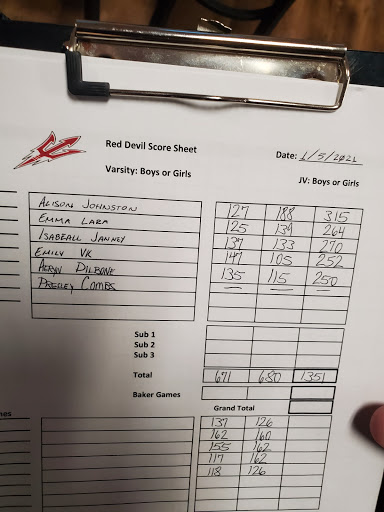 Red Devil Score Sheet
Date: 1/5/2021
Varsity: Boys or Girls
JV: Boys or Girls
ALISON JOHNSTON 127 188 315
EMMA LARA 125 139 264
ISABEALL JANNEY 137 133 270
EMILY VK 147 105 252
DILBONE 135 115 250
COMBS — — —
Sub 1
Sub 2
Sub 3
Total 671 680 1351
Baker Games
Grand Total
137 126
162 160
155 162
117 162
118 126